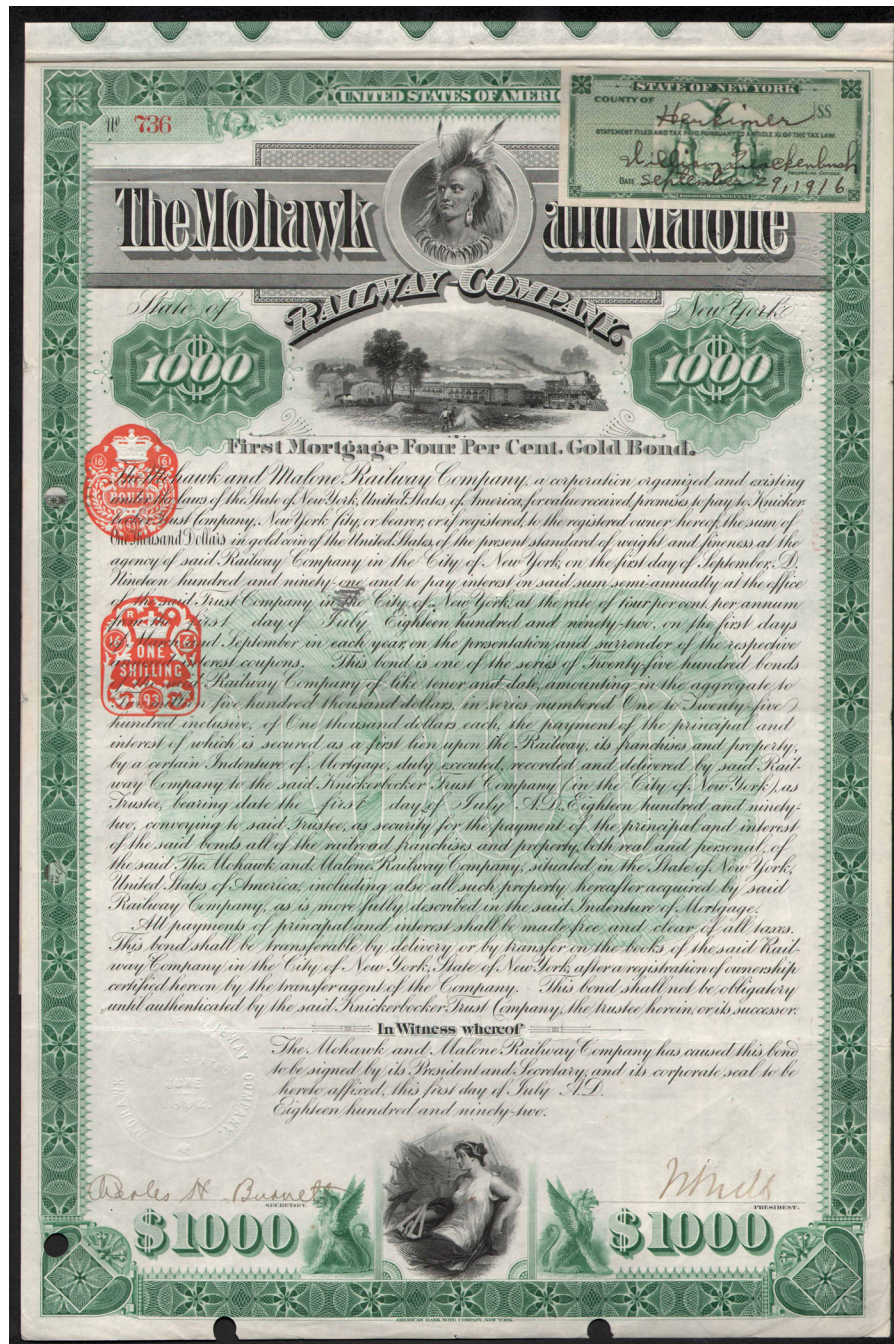 UNITED STATES OF AMERIC
STATE OF NEW YORK
COUNTY OF Herkimer SS
STATEMENT FILED AND TAX PAID PURSUANT TO ARTICLE XI OF THE TAX LAW
William Quackenbush
RECORDING OFFICER
DATE September 29, 1916
Nº 736
The Mohawk and Malone
RAILWAY COMPANY
State of New York
1000 1000
First Mortgage Four Per Cent. Gold Bond.
The Mohawk and Malone Railway Company, a corporation organized and existing
under the laws of the State of New York, United States of America, for value received, promises to pay to Knicker
bocker Trust Company, New York City, or bearer, or if registered, to the registered owner hereof, the sum of
One Thousand Dollars in gold coin of the United States, of the present standard of weight and fineness at the
agency of said Railway Company in the City of New York, on the first day of September A.D.
Nineteen hundred and ninety-one and to pay interest on said sum semi-annually at the office
of the said Trust Company, in the City of New York, at the rate of four per cent. per annum
from the first day of July Eighteen hundred and ninety-two, on the first days
of March and September in each year, on the presentation and surrender of the respective
interest coupons. This bond is one of the series of Twenty-five hundred bonds
Railway Company of like tenor and date, amounting in the aggregate to
five hundred thousand dollars, in series numbered One to Twenty-five
hundred inclusive, of One thousand dollars each, the payment of the principal and
interest of which is secured as a first lien upon the Railway, its franchises and property,
by a certain Indenture of Mortgage, duly executed, recorded and delivered by said Rail-
way Company to the said Knickerbocker Trust Company (in the City of New York), as
Trustee, bearing date the first day of July A.D. Eighteen hundred and ninety-
two, conveying to said Trustee, as security for the payment of the principal and interest
of the said bonds all of the railroad franchises and property, both real and personal, of
the said The Mohawk and Malone Railway Company, situated in the State of New York,
United States of America, including also all such property hereafter acquired by said
Railway Company, as is more fully described in the said Indenture of Mortgage.
All payments of principal and interest shall be made free and clear of all taxes.
This bond shall be transferable by delivery or by transfer on the books of the said Rail-
way Company in the City of New York, State of New York, after a registration of ownership
certified hereon by the transfer agent of the Company. This bond shall not be obligatory
until authenticated by the said Knickerbocker Trust Company, the trustee herein, or its successor.
ONE
POUND
ONE
SHILLING
93
In Witness whereof
The Mohawk and Malone Railway Company has caused this bond
to be signed by its President and Secretary, and its corporate seal to be
hereto affixed, this first day of July A.D.
Eighteen hundred and ninety-two.
JUNE
1892
Charles H. Burnett
SECRETARY.
PRESIDENT.
$1000 $1000
AMERICAN BANK NOTE COMPANY, NEW YORK.